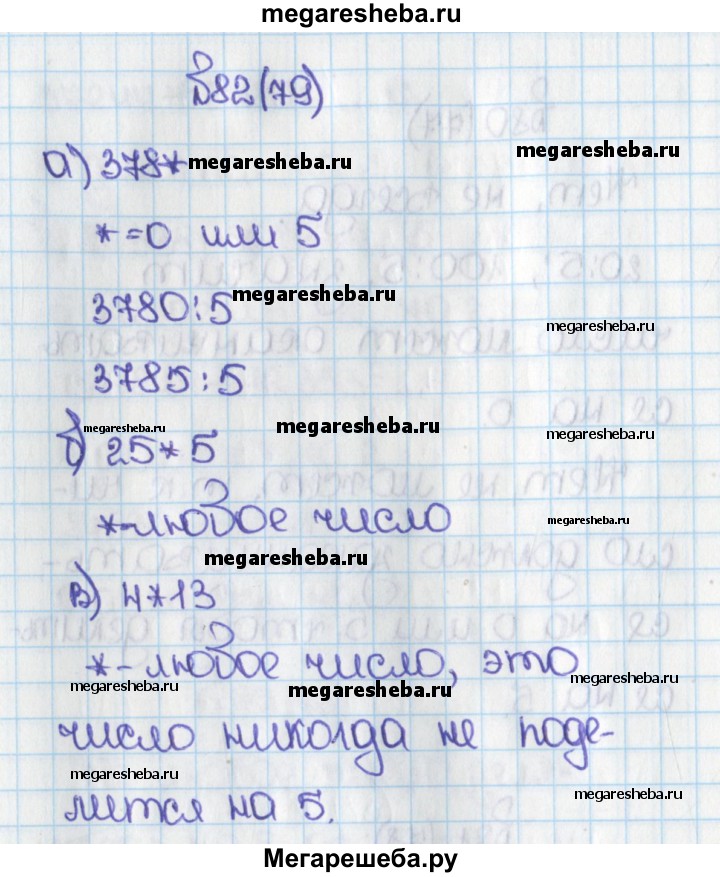 megaresheba.ru
№82(79)
а) 378* megaresheba.ru
megaresheba.ru
*=0 или 5
3780:5 megaresheba.ru
megaresheba.ru
3785:5
megaresheba.ru megaresheba.ru
megaresheba.ru
б) 25*5
*-любое число megaresheba.ru
megaresheba.ru
в) 4*13
*-любое число, это
megaresheba.ru megaresheba.ru megaresheba.ru
число никогда не поде-
megaresheba.ru megaresheba.ru
лится на 5.
Мегарешеба.ру